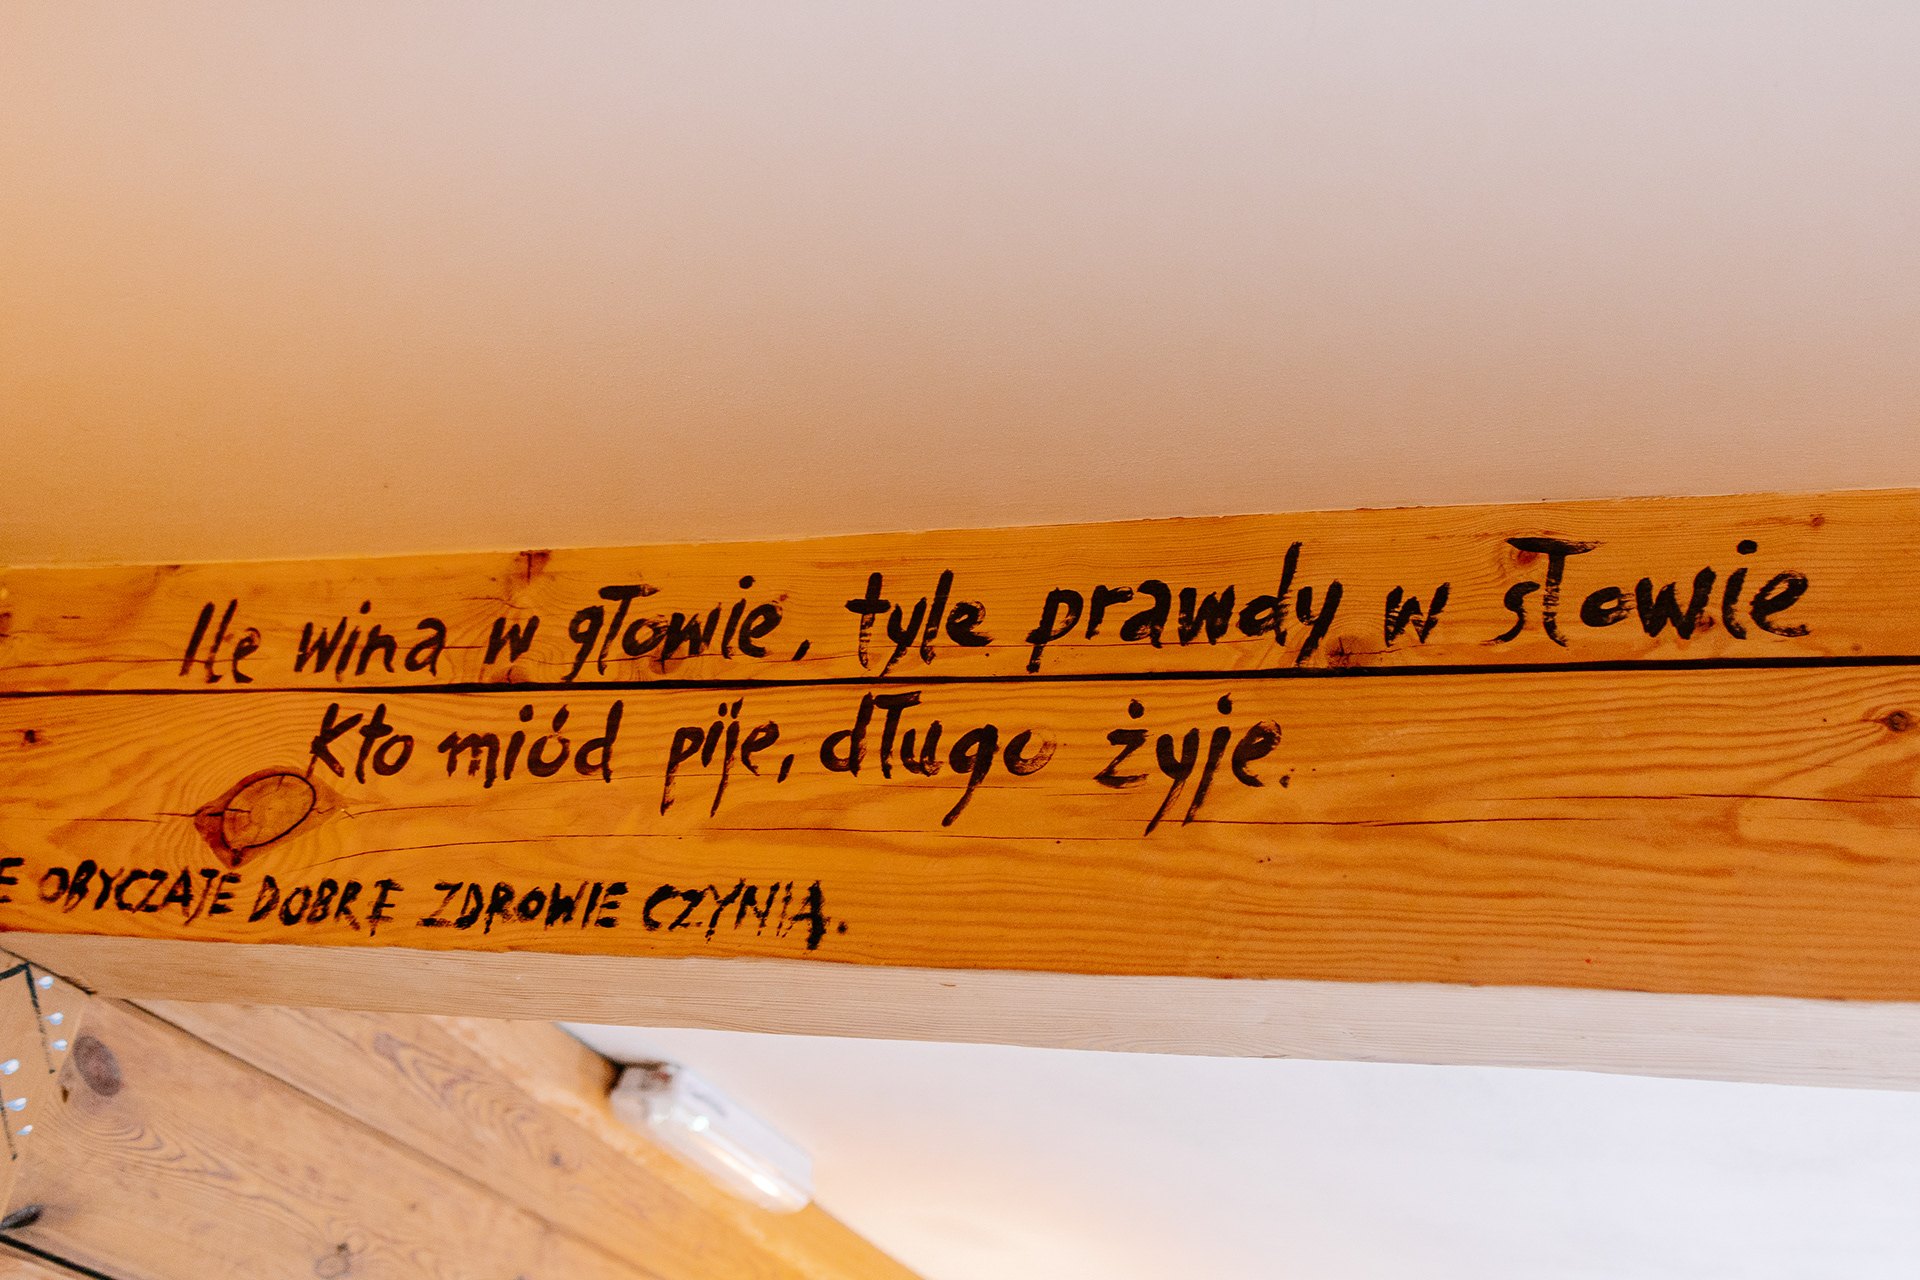 Ile wina w głowie, tyle prawdy w słowie
Kto miód pije, długo żyje.
E OBYCZAJE DOBRE ZDROWIE CZYNIĄ.